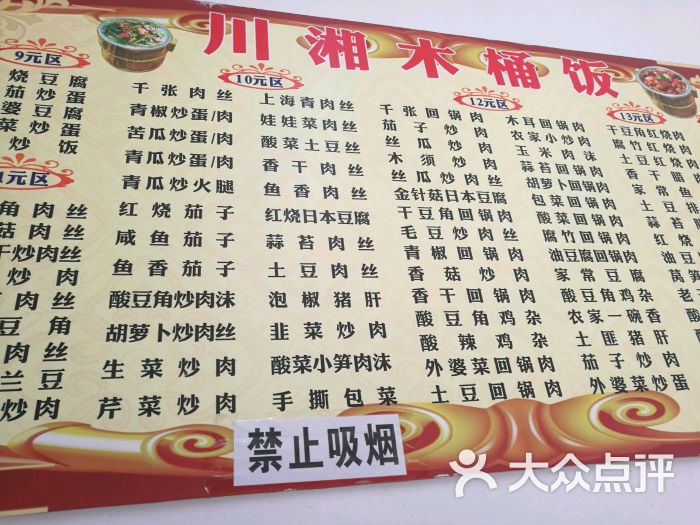 川湘木桶饭
9元区
烧豆腐
茄炒蛋
婆豆腐
菜炒蛋
炒饭
1元区
角肉丝
菇肉丝
干炒肉丝
炒肉
肉丝
豆角
肉丝
兰豆
炒肉
10元区
千张肉丝
青椒炒蛋/肉
苦瓜炒蛋/肉
青瓜炒蛋/肉
青瓜炒火腿
红烧茄子
咸鱼茄子
鱼香茄子
酸豆角炒肉沫
胡萝卜炒肉丝
生菜炒肉
芹菜炒肉
上海青肉丝
娃娃菜肉丝
酸菜土豆丝
香干肉丝
鱼香肉丝
红烧日本豆腐
蒜苔肉丝
土豆肉丝
泡椒猪肝
韭菜炒肉
酸菜小笋肉沫
手撕包菜
12元区
千张回锅肉
茄子炒肉
丝瓜炒肉
木须炒肉
丝瓜炒肉丝
金针菇日本豆腐
干豆角回锅肉
毛豆炒肉丝
青椒回锅肉
香菇炒肉
香干回锅肉
酸豆角鸡杂
酸辣鸡杂
外婆菜回锅肉
土豆回锅肉
木耳回锅肉
农家小炒肉
玉米肉沫
蒜苔回锅肉
胡萝卜回锅肉
包菜回锅肉
酸菜回锅肉
腐竹回锅肉
油豆腐回锅肉
家常豆腐
酸豆角鸡杂
农家一碗香
土匪猪肝
茄子炒肉
外婆菜炒蛋
13元区
干豆角红烧肉
腐竹红烧肉
土豆红烧
香干腊
家常鱼
土豆排
蒜苔腊
莴笋
禁止吸烟
大众点评